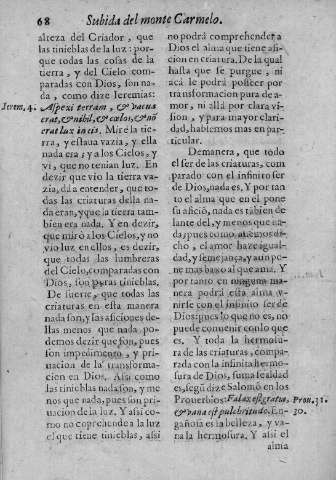 68 Subida del monte Carmelo.
alteza del Criador, que
las tinieblas de la luz: por-
que todas las cosas de la
tierra, y del Cielo com-
paradas con Dios, son na-
da, como dize Jeremias:
Jerem. 4.
Aspexi terram, & vacua
erat, & nihil, & cælos, & nõ
erat lux in eis. Mirè la tie-
rra, y estaua vazia, y ella
nada era; y a los Cielos, y
vi, que no tenian luz. En
dezir que vio la tierra va-
zia, dà a entender, que to-
das las criaturas della na-
da eran, y que la tierra tam-
bien era nada. Y en dezir,
que mirò a los Cielos, y no
vio luz en ellos, es dezir,
que todas las lumbreras
del Cielo, comparadas con
Dios, son puras tinieblas.
De suerte, que todas las
criaturas en esta manera
nada son, y las aficiones de-
llas menos que nada po-
demos dezir que son, pues
son impedimento, y pri-
uacion de la transforma-
cion en Dios. Asi como
las tinieblas nada son, y me-
nos que nada, pues son pri-
uacion de la luz. Y asi co-
mo no coprehende a la luz
el que tiene tinieblas, assi
no podrà comprehender a
Dios el alma que tiene afi-
cion en criatura. De la qual
hasta que se purgue, ni
acà le podrà posseer por
transformacion pura de a-
mor, ni allà por clara vi-
sion, y para mayor clari-
dad, hablemos mas en par-
ticular.
De manera, que todo
el ser de las criaturas, com
parado con el infinito ser
de Dios, nada es, Y por tan
to el alma que en el pone
su aficiõ, nada es tãbien de
lante del, y menos que na-
da, pues como auemos di-
cho, el amor haze igual-
dad, y semejança, y aun po-
ne mas baxo al que ama. Y
por tanto en ninguna ma-
neca podrà esta alma v-
nirse con el infinito ser de
Dios: pues lo que no es, no
puede conuenir con lo que
es. Y toda la hermosu-
ra de las criaturas, compa-
rada con la infinita hermo-
sura de Dios, suma fealdad
es, segũ dize Salomõ en los
Prouerbios: Falax est gratia,
Prou. 31.
& vana est pulchritudo. En-
30.
gañosa es la belleza, y va-
na la hermosura. Y asi el
alma